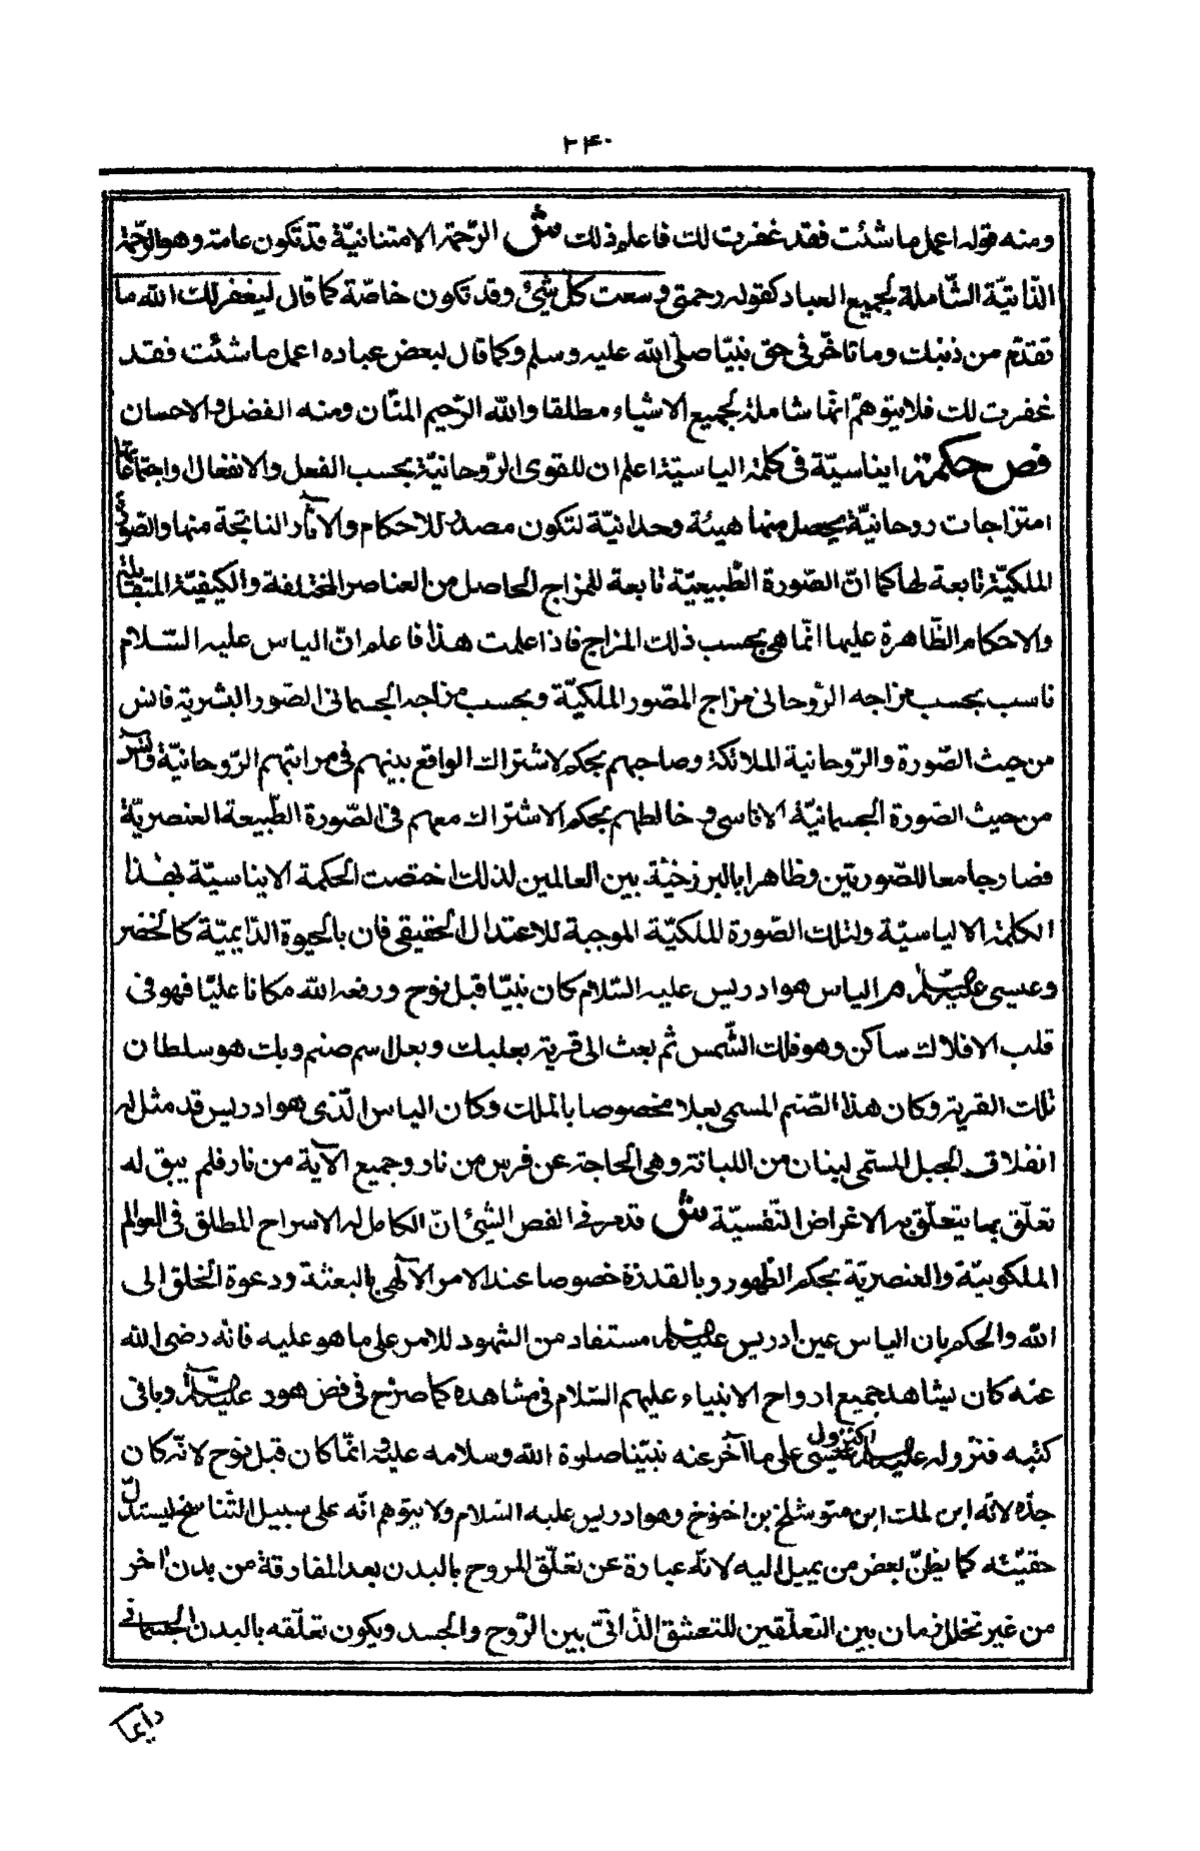 ۲۴۰
ومنه قوله اعمل ما شئت فقد غفرت لك فاعلم ذلك ش الرّحمة الامتنانيّة قد تكون عامة وهو الرّحمة
الذّاتيّة الشّاملة لجميع العباد كقوله رحمتى وسعت كلّ شئ وقد تكون خاصّة كما قال ليغفر لك الله ما
تقدّم من ذنبك وما تاخّر فى حق نبيّنا صلّى الله عليه وسلم وكما قال لبعض عباده اعمل ما شئت فقد
غفرت لك فلا يتوهّم انّها شاملة لجميع الاشياء مطلقا والله الرّحيم المنّان ومنه الفضل والاحسان
فص حكمة ايناسيّة فى كلمة الياسيّة اعلم ان للقوى الرّوحانيّة بحسب الفعل والانفعال واجتماعاتها
امتزاجات روحانيّة يحصل منها هيئة وحدانيّة لتكون مصدر للاحكام والآثار الناتجة منها والصّورة
الملكيّة تابعة لها كما انّ الصّورة الطّبيعيّة تابعة للمزاج الحاصل من العناصر المختلفة والكيفيّة المتقابلة
والاحكام الظّاهرة عليها انّما هى بحسب ذلك المزاج فاذا علمت هذا فاعلم انّ الياس عليه السّلام
ناسب بحسب مزاجه الرّوحانى مزاج الصّور الملكيّة وبحسب مزاجه الجسمانى الصّور البشرية فانس
من حيث الصّورة والرّوحانية الملائكة وصاحبهم بحكم لاشتراك الواقع بينهم فى مراتبهم الرّوحانيّة وانس
من حيث الصّورة الجسمانيّة الاناسى وخالطهم بحكم الاشتراك معهم فى الصّورة الطّبيعة العنصريّة
فصار جامعا للصّورتين وظاهرا بالبرزخيّة بين العالمين لذلك اختصت الحكمة الايناسيّة بهذا
الكلمة الالياسيّة ولتلك الصّورة الملكيّة الموجبة للاعتدال الحقيقى فان بالحيوة الدّايميّة كالخضر
وعيسى عليه السلام م الياس هو ادريس عليه السّلام كان نبيّا قبل نوح ورفعه الله مكانا عليّا فهو فى
قلب الافلاك ساكن وهو فلك الشّمس ثم بعث الى قرية بعلبك وبعل اسم صنم وبك هو سلطان
تلك القرية وكان هذا الصّنم المسمى بعلا مخصوصا بالملك وكان الياس الّذى هو ادريس قد مثل له
انفلاق الجبل المسمّى لبنان من اللبانة وهى الحاجة عن فرس من نار وجميع الآية من نار فلم يبق له
تعلّق بما يتعلّق به الاغراض النّفسيّة ش قد مر فى الفص الشيثى انّ الكامل له الاسراح المطلق فى العوالم
الملكوتيّة والعنصريّة بحكم الظّهور وبالقدرة خصوصا عند الامر الآلهى بالبعثة ودعوة الخلق الى
الله والحكم بان الياس عين ادريس عليه السلام مستفاد من الشهود للامر على ما هو عليه فانّه رضى الله
عنه كان يشاهد جميع ارواح الانبياء عليهم السّلام فى مشاهده كما صرّح فى فص هود عليه السلام وباقى
كتبه فنزوله عليه السلام كنزول عيسى على ما آخر عنه نبيّنا صلوة الله وسلامه عليه وانّما كان قبل نوح لانّه كان
جدّه لانّه ابن لمك ابن متوشلخ بن اخنوخ وهو ادريس عليه السّلام ولا يتوهم انّه على سبيل التّناسخ ليستدلّ
حقيّته كما يظنّ بعض من يميل اليه لانّه عبارة عن تعلّق الروح بالبدن بعد المفارقة من بدن اخر
من غير تخلل زمان بين التعلّقين للتعشق الذّاتىّ بين الرّوح والجسد ويكون تعلّقه بالبدن الجسمانى
دايما